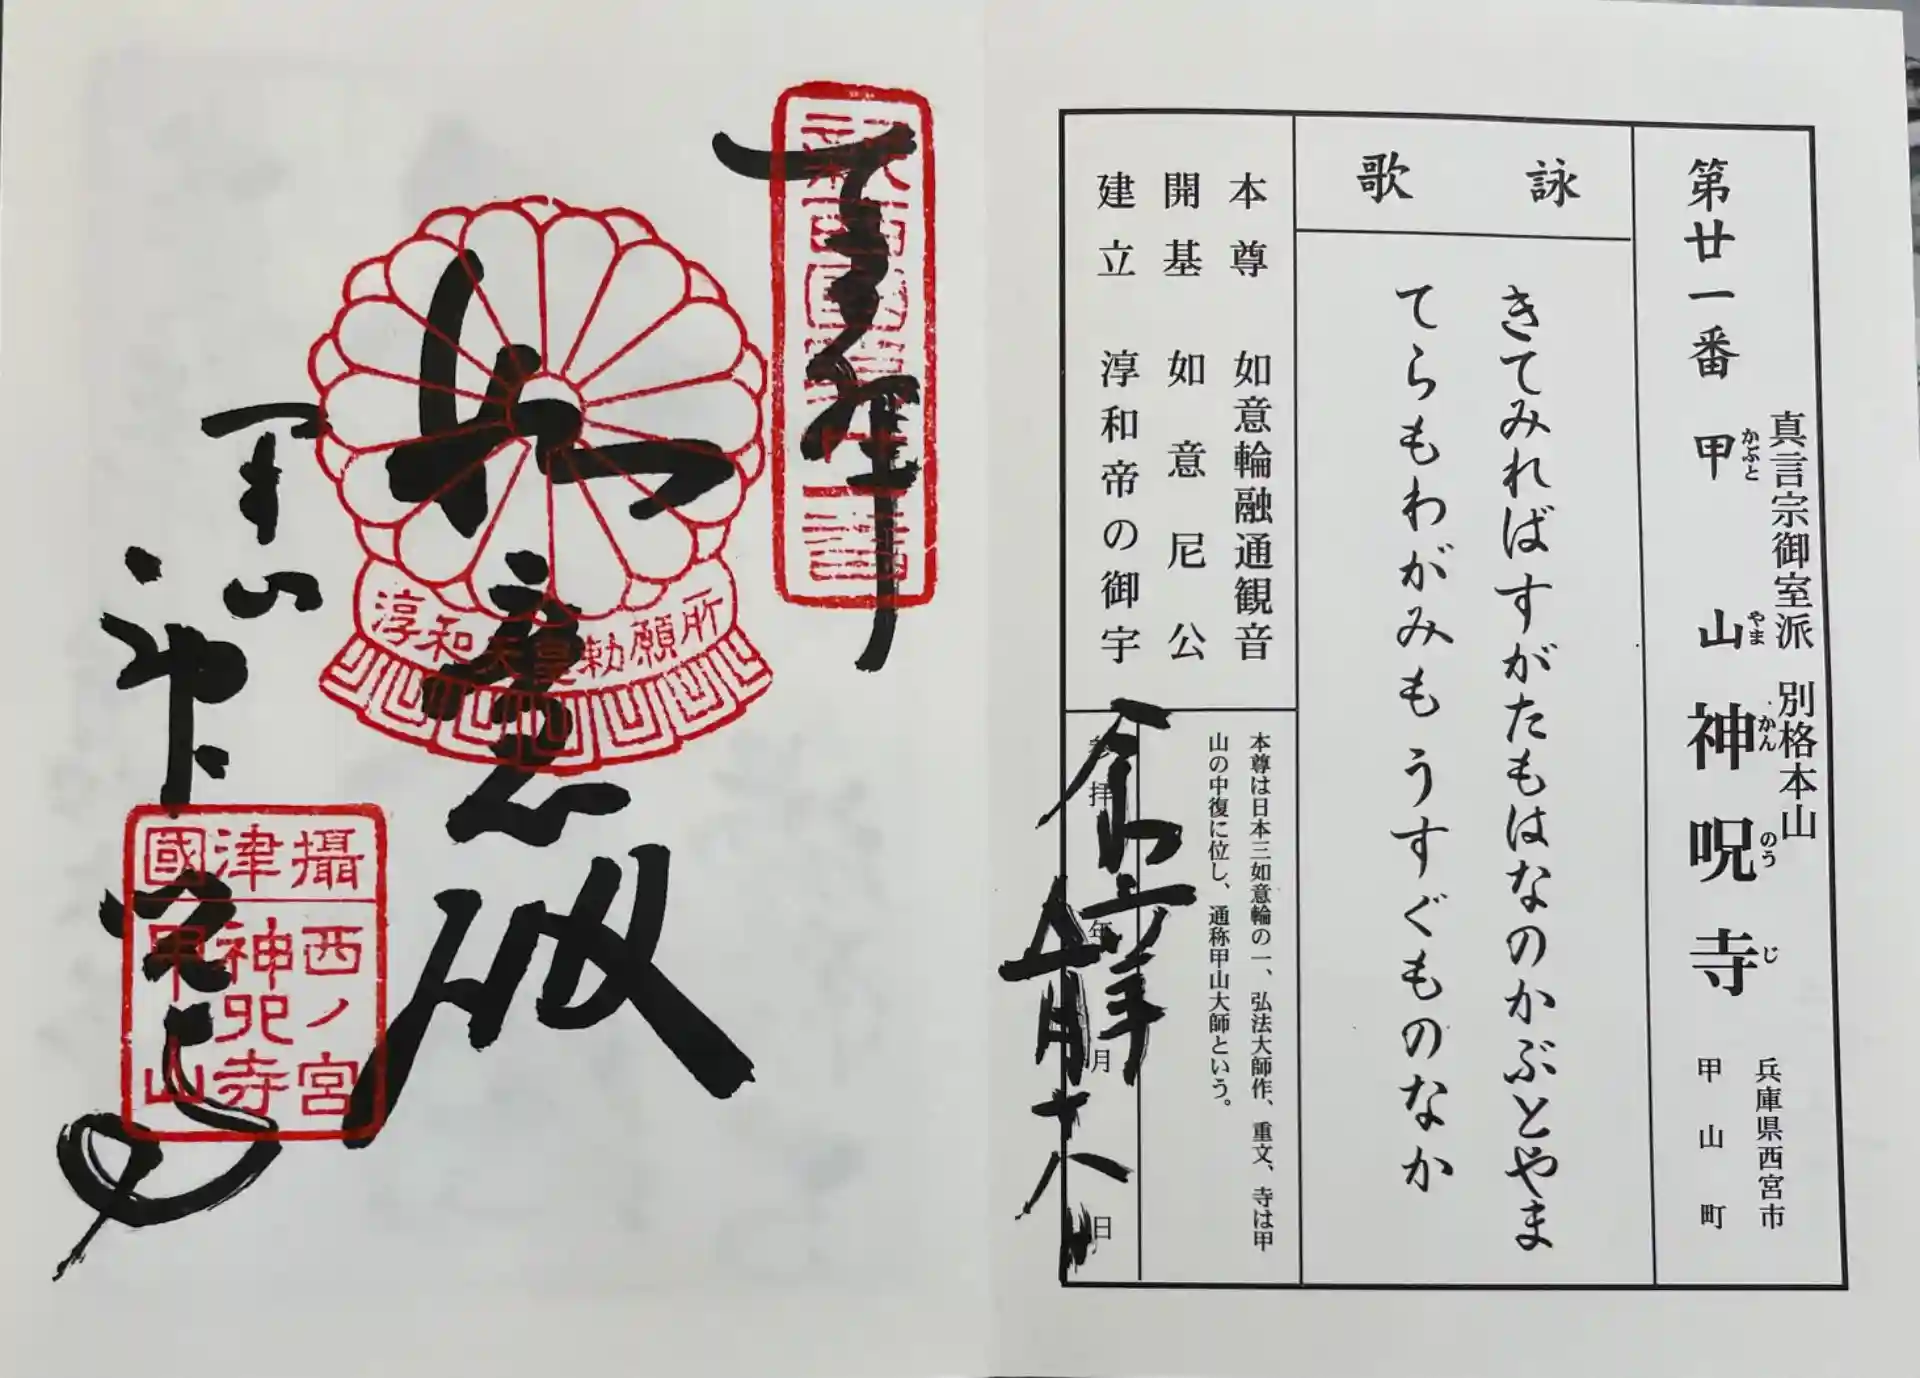 真言宗御室派 別格本山
第廿一番 甲山 神呪寺
かぶと やま かん のう じ
兵庫県西宮市
甲山町
詠歌
きてみればすがたもはなのかぶとやま
てらもわがみも うすぐものなか
本尊 如意輪融通観音
開基 如意尼公
建立 淳和帝の御宇
本尊は日本三如意輪の一、弘法大師作、重文、寺は甲
山の中復に位し、通称甲山大師という。
拝 年 月 日
月十八日
奉拝
新西国第廿一番
如意殿
淳和天皇勅願所
甲山
神呪寺
攝津國
西ノ宮
神呪寺
甲山